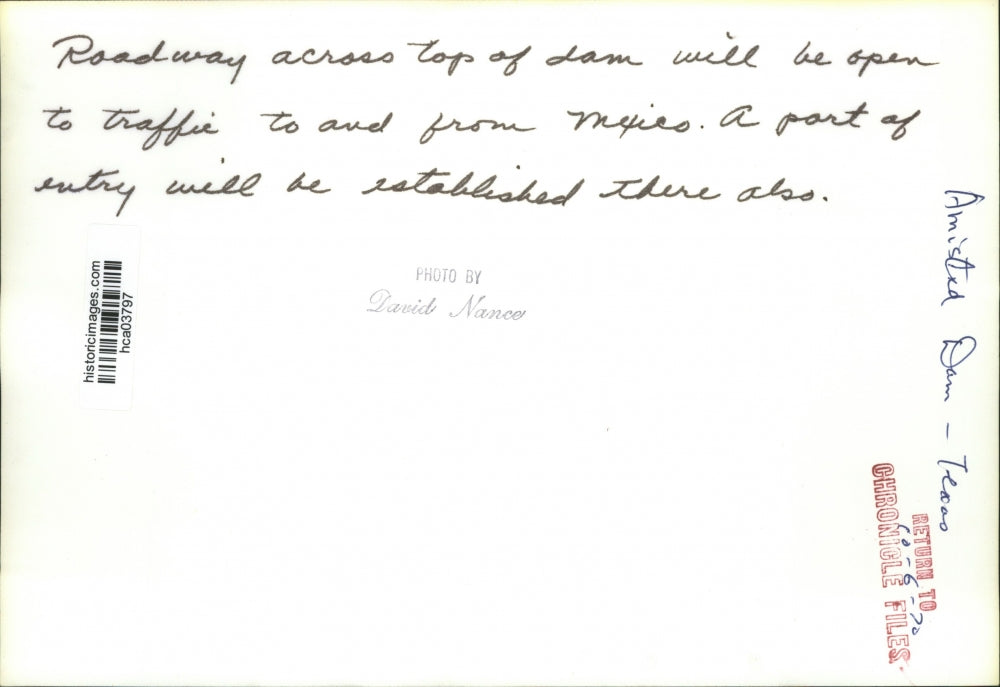 Roadway across top of dam will be open
to traffic to and from Mexico. A port of
entry will be established there also.
historicimages.com
hca03797
PHOTO BY
David Nance
Amistad Dam - Texas
RETURN TO
CHRONICLE FILES